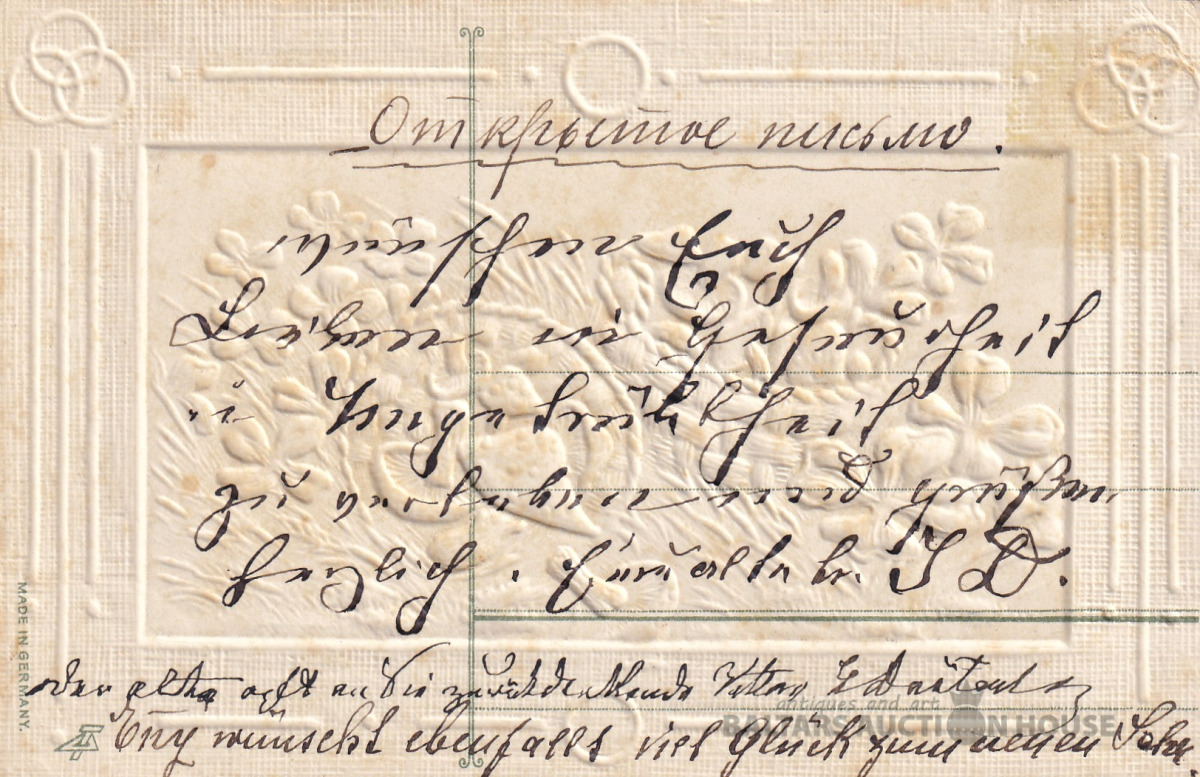 Открытое письмо.
wünschen Euch
in Gesundheit
u Ungetrübtheit
zu verleben und grüßen
herzlich.
Der alte oft an Sie zurückdenkende
wünscht ebenfalls viel Glück zum neuen Jahr
MADE IN GERMANY.
antiques and art
AUCTION HOUSE